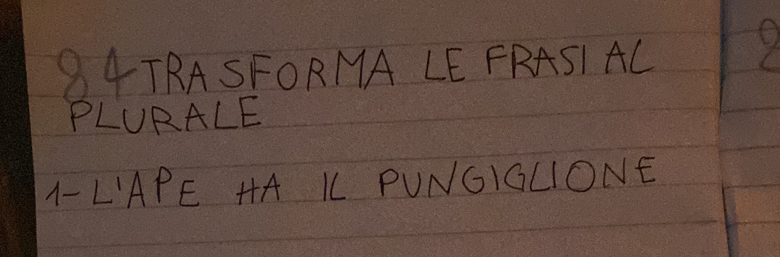 84 TRASFORMA LE FRASI AL
PLURALE
1- L'APE HA IL PUNGIGLIONE